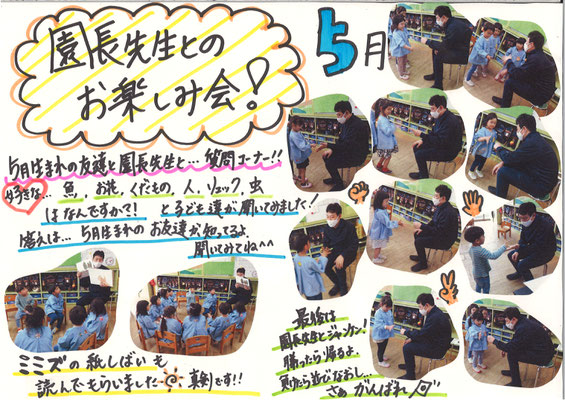 園長先生との
お楽しみ会!
5月
5月生まれの友達と園長先生と…質問コーナー!!
好きな…魚,お花,くだもの,人,リュック,虫
はなんですかて! と子ども達が聞いてみました!
答えは…5月生まれのお友達が知ってるよ
聞いてみてね^^
ミミズの紙しばいも
読んでもらいました 真剣です!!
最後は
園長先生とジャンケン!
勝ったら帰るよ。
負けたら並びなおし…
さぁ がんばれ